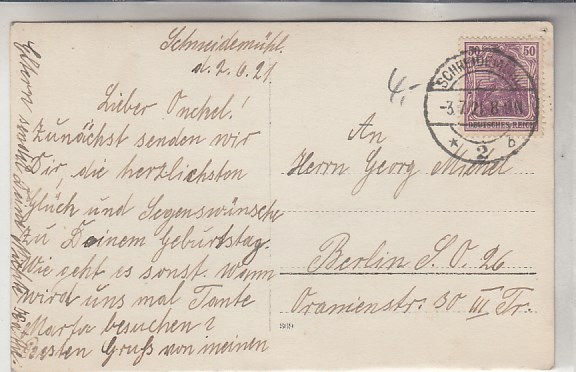 Schneidemühl.
d. 2.6.21
Lieber Onckel!
Zunächst senden wir
Dir, die herzlichsten
Glück und Segenswünsche
zu Deinem Geburtstag.
Wie geht es sonst. Wann
wird uns mal Tante
Marta besuchen?
Besten Gruß von meinen
Eltern
4,-
50 50
DEUTSCHES REICH
SCHNEIDEMÜHL
-3.7.21. 8-9N
* 2 b
An
Herrn Georg Michel
Berlin S.O. 26
Oranienstr. 30 III Tr.